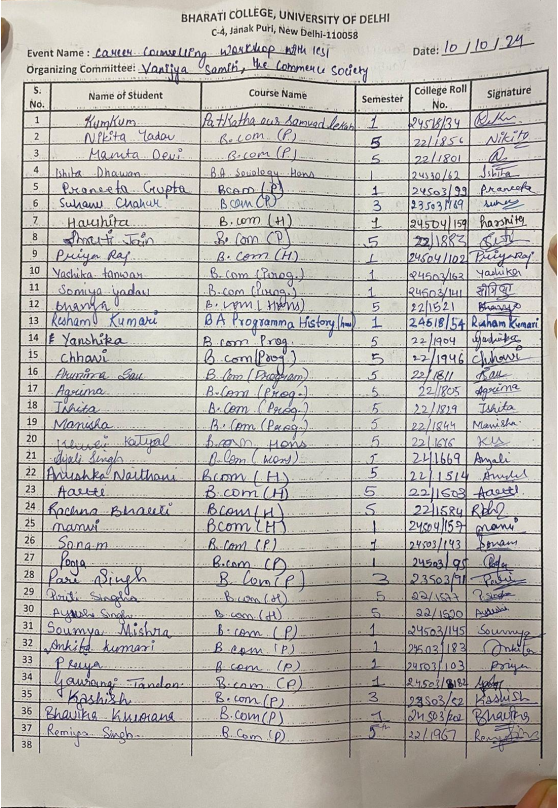 BHARATI COLLEGE, UNIVERSITY OF DELHI
C-4, Janak Puri, New Delhi-110058
Event Name : Career Counselling Workshop with ICSI Date: 10/10/24
Organizing Committee: Vanijya Samiti, The Commerce Society
S. No. Name of Student Course Name Semester College Roll No. Signature
1 KumKum Patkatha aur Samvad lekhan 1 24518/34
2 Nikita Yadav B.com (P) 5 22/1856 Nikita
3 Mamta Devi B.com (P) 5 22/1801
4 Ishita Dhawan B.A Sociology Hons 1 24530/62 Ishita
5 Praneeta Gupta BCom (P) 1 24503/99 Praneeta
6 Suhani Chahar BCom (P) 3 23503/169
7 Harshita B.com (H) 1 24504/159 harshita
8 Shruti Jain B.Com (P) 5 22/1883
9 Priya Raj B.com (H) 1 24504/102 PriyaRaj
10 Yashika tanwar B.com (Prog.) 1 24503/163 Yashika
11 Somiya yadav B.com (Prog.) 1 24503/141 सौमिया
12 Bhavya B.com (Hons) 5 22/1521 Bhavya
13 Resham Kumari BA Programma History (hons) 1 24518/54 Resham Kumari
14 Vanshika B.com Prog. 5 22/1904
15 Chhavi B.com (Prog.) 5 22/1946 Chhavi
16 B.Com (Program) 5 22/1811
17 Agrima B.Com (Prog.) 5 22/1805 Agrima
18 Ishita B.Com (Prog.) 5 22/1829 Ishita
19 Manisha B.Com (Prog.) 5 22/1844 Manisha
20 Katyal B.com Hons 5 22/1676
21 Anjali Singh B.Com (Hons) 5 21/1669 Anjali
22 Anushka Naithani Bcom (H) 5 22/1514
23 Aarti B.com (H) 5 22/1503 Aarti
24 Rachna Bharti BCom (H) 5 22/1584
25 Manvi BCom (H) 1 24504/157 manvi
26 Sonam B.com (P) 1 24503/143 Sonam
27 Pooja B.com (P) 1 24503/95
28 Pari Singh B.Com (P) 3 23503/91 Pari
29 Priti Singha B.com (H) 5 22/1577
30 Ayushi Singh B.com (H) 5 22/1520
31 Soumya Mishra B.com (P) 1 24503/145 Soumya
32 Ankita Kumari B.com (P) 1 24503/183 Ankita
33 Priya B.com (P) 1 24503/103 Priya
34 Gaurangi Tandon B.com (P) 1
35 Kashish B.com (P) 3 23503/52 Kashish
36 Bhavika Khurana B.com (P) 1 24503/202 Bhavika
37 Remiya Singh B.Com (P) 5th 22/1967
38